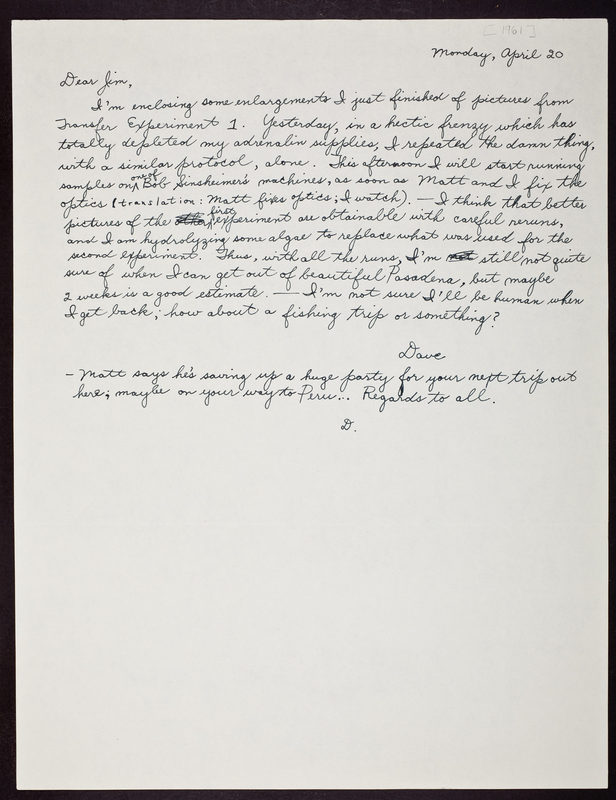 [1961]
Monday, April 20
Dear Jim,
I'm enclosing some enlargements I just finished of pictures from
Transfer Experiment 1. Yesterday, in a hectic frenzy which has
totally depleted my adrenalin supplies, I repeated the damn thing,
with a similar protocol, alone. This afternoon I will start running
samples on one of Bob Sinsheimer's machines, as soon as Matt and I fix the
optics (translation: Matt fixes optics; I watch). — I think that better
pictures of the first experiment are obtainable with careful reruns,
and I am hydrolyzing some algae to replace what was used for the
second experiment. Thus, with all the runs, I'm still not quite
sure of when I can get out of beautiful Pasadena, but maybe
2 weeks is a good estimate. — I'm not sure I'll be human when
I get back; how about a fishing trip or something?
Dave
- Matt says he's saving up a huge party for your next trip out
here; maybe on your way to Peru... Regards to all.
D.